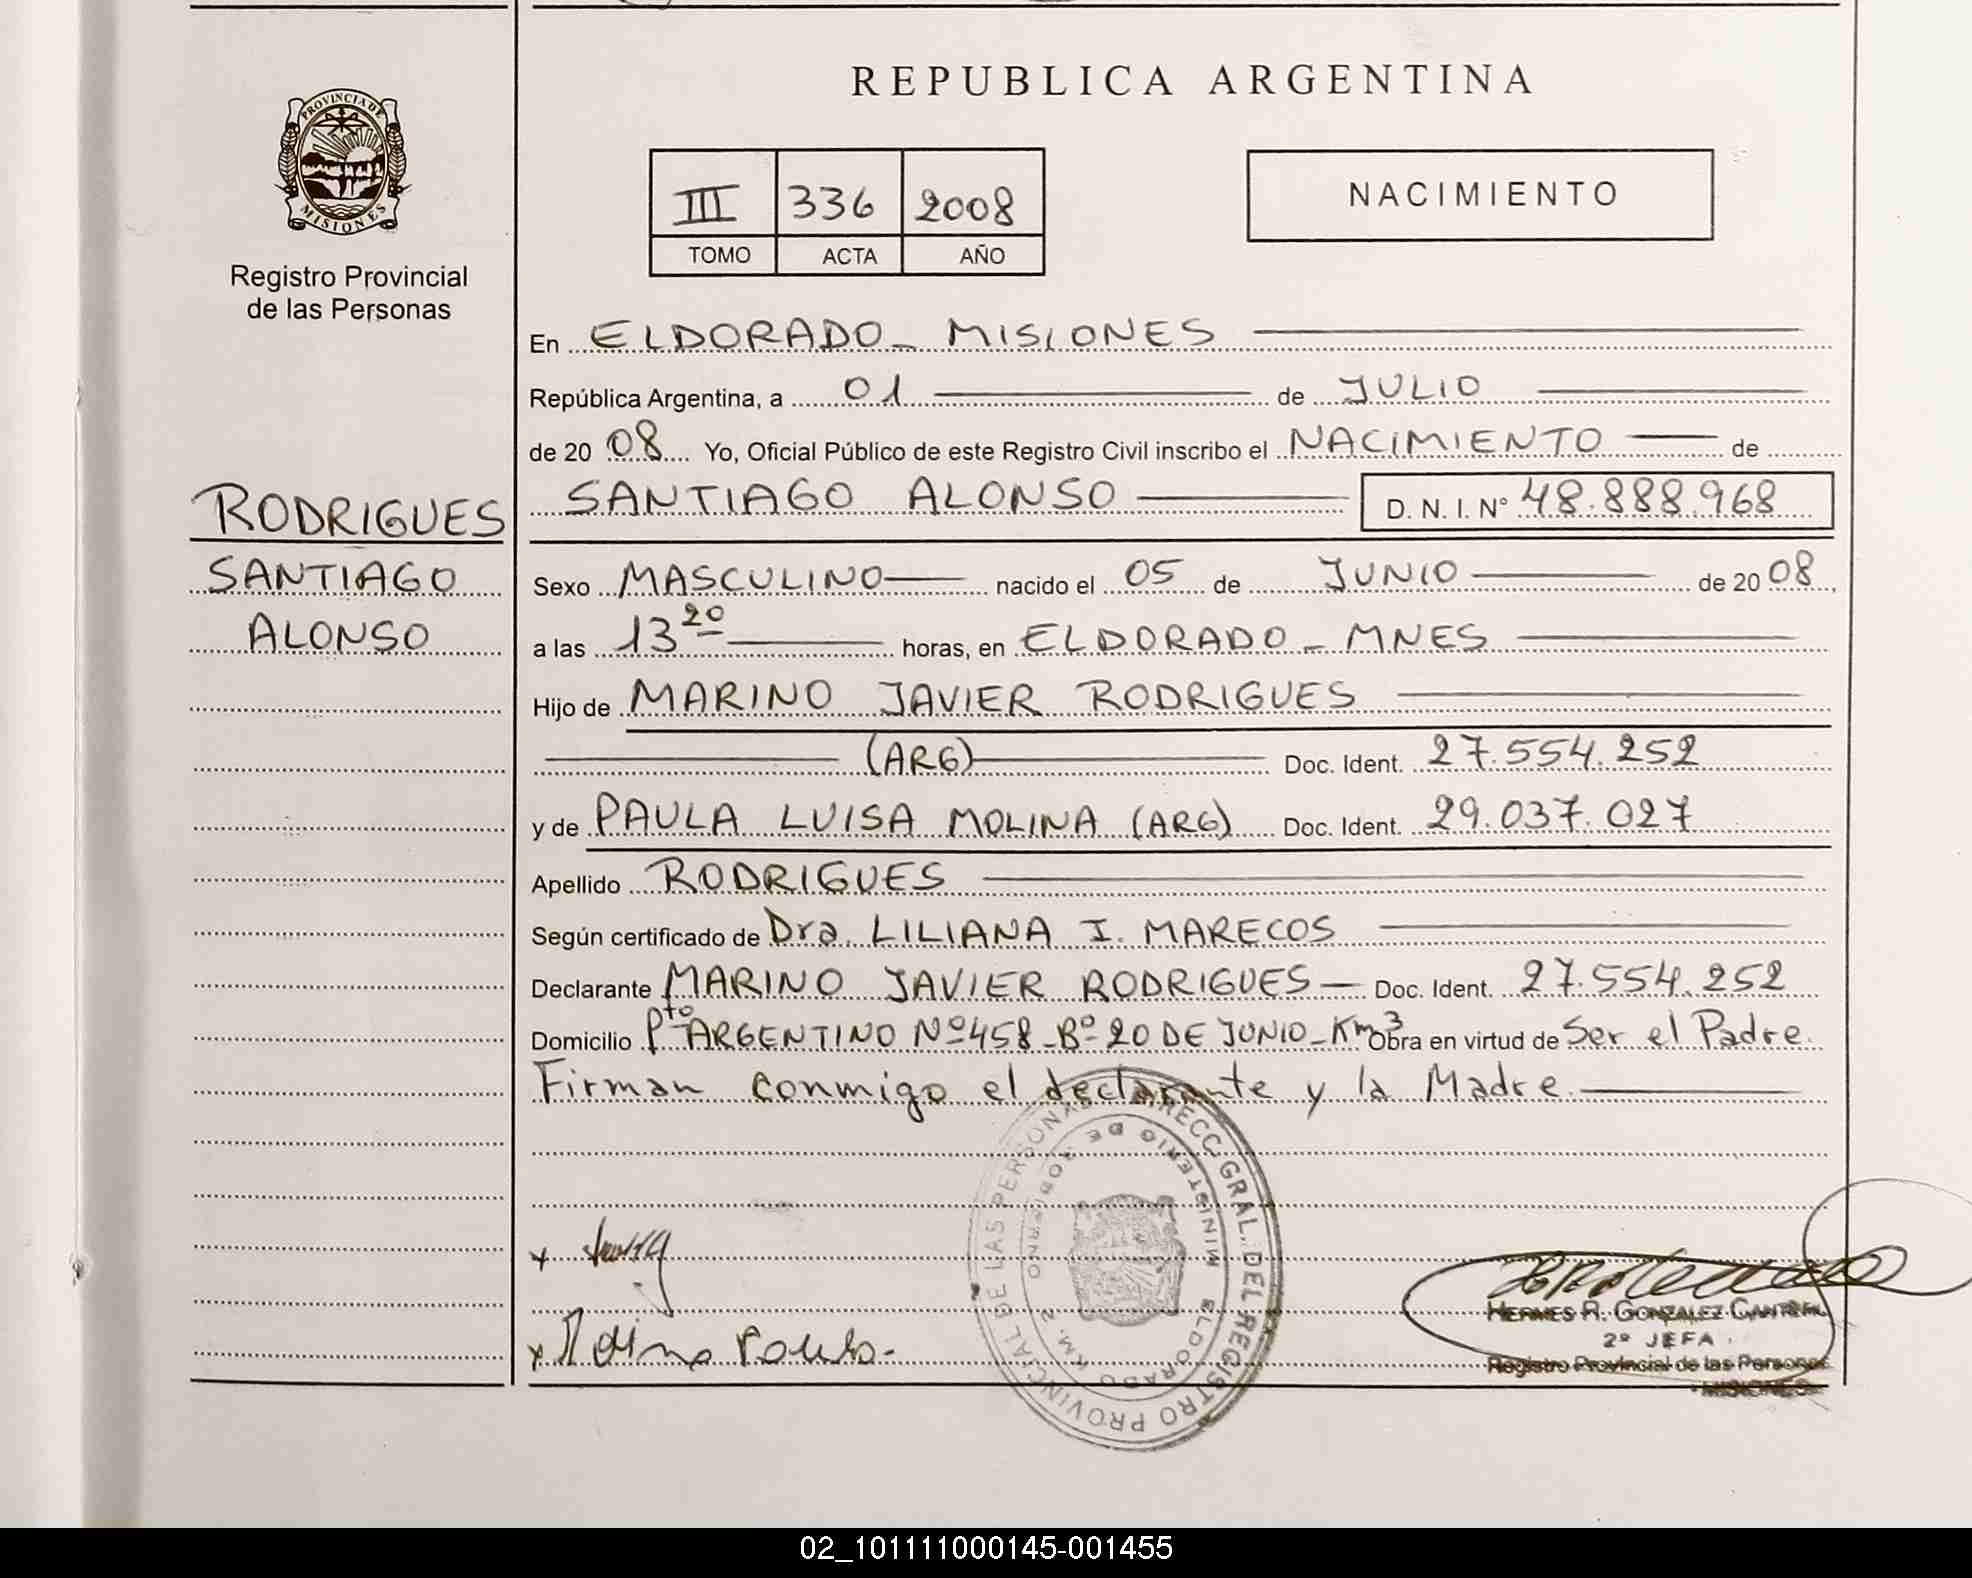 REPUBLICA ARGENTINA
PROVINCIA DE
MISIONES
Registro Provincial
de las Personas
III 336 2008
TOMO ACTA AÑO
NACIMIENTO
En ELDORADO - MISIONES
República Argentina, a 01 de JULIO
de 20 08 Yo, Oficial Público de este Registro Civil inscribo el NACIMIENTO de
RODRIGUES
SANTIAGO
ALONSO
SANTIAGO ALONSO D. N. I. N° 48.888.968
Sexo MASCULINO nacido el 05 de JUNIO de 20 08,
a las 13 20 horas, en ELDORADO - MNES
Hijo de MARINO JAVIER RODRIGUES
(ARG) Doc. Ident. 27.554.252
y de PAULA LUISA MOLINA (ARG) Doc. Ident. 29.037.027
Apellido RODRIGUES
Según certificado de Dra. LILIANA I. MARECOS
Declarante MARINO JAVIER RODRIGUES - Doc. Ident. 27.554.252
Domicilio Pto ARGENTINO Nº 458 - Bº 20 DE JUNIO - Km 3 Obra en virtud de Ser el Padre.
Firman conmigo el declarante y la Madre.
DIRECC. GRAL. DEL REGISTRO PROVINCIAL DE LAS PERSONAS
MINISTERIO DE GOBIERNO
ELDORADO KM. 2
HERMES R. GONZALEZ
2º JEFA
Registro Provincial de las Personas
MISIONES
02_101111000145-001455